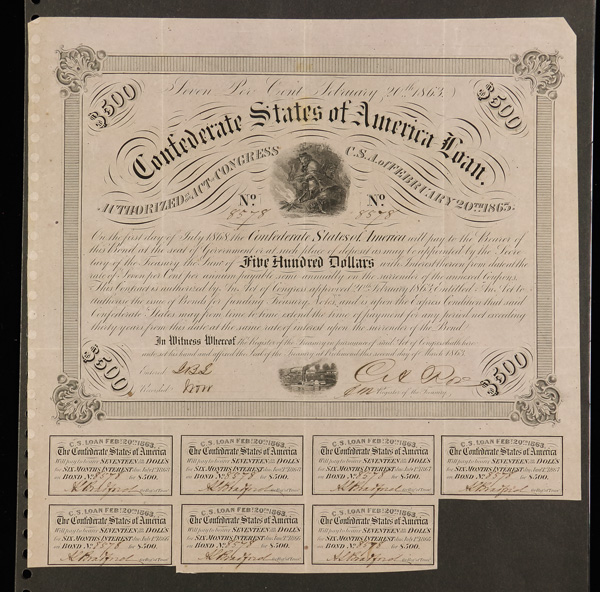 $500
$500
Seven Per Cent February 20th 1863
Confederate States of America Loan.
AUTHORIZED BY ACT OF CONGRESS C.S.A. of FEBRUARY 20TH 1863.
No No
8578 8578
On the first day of July 1868, the Confederate States of America will pay to the Bearer of
this Bond at the seat of Government or at such place of deposit as may be appointed by the Secre-
tary of the Treasury the Sum of Five Hundred Dollars with Interest thereon from date at the
rate of Seven per Cent per annum payable semi-annually on the surrender of the annexed Coupons.
This Contract is authorized by An Act of Congress approved 20th February 1863 Entitled An Act to
authorize the issue of Bonds for funding Treasury Notes and is upon the Express Condition that said
Confederate States may from time to time extend the time of payment for any period not exceeding
thirty years from this date at the same rate of interest upon the surrender of the Bond
In Witness Whereof the Register of the Treasury in pursuance of said Act of Congress hath here-
unto set his hand and affixed the Seal of the Treasury at Richmond this second day of March 1863.
Entered
Recorded
Register of the Treasury
$500
$500
C.S. LOAN FEB. 20TH 1863. C.S. LOAN FEB. 20TH 1863. C.S. LOAN FEB. 20TH 1863. C.S. LOAN FEB. 20TH 1863.
The Confederate States of America The Confederate States of America The Confederate States of America The Confederate States of America
Will pay to bearer SEVENTEEN 50/100 DOLLS Will pay to bearer SEVENTEEN 50/100 DOLLS Will pay to bearer SEVENTEEN 50/100 DOLLS Will pay to bearer SEVENTEEN 50/100 DOLLS
for SIX MONTHS INTEREST due for SIX MONTHS INTEREST due for SIX MONTHS INTEREST due for SIX MONTHS INTEREST due
on BOND No 8578 for $500. on BOND No 8578 for $500. on BOND No 8578 for $500. on BOND No 8578 for $500.
C.S. LOAN FEB. 20TH 1863. C.S. LOAN FEB. 20TH 1863. C.S. LOAN FEB. 20TH 1863.
The Confederate States of America The Confederate States of America The Confederate States of America
Will pay to bearer SEVENTEEN 50/100 DOLLS Will pay to bearer SEVENTEEN 50/100 DOLLS Will pay to bearer SEVENTEEN 50/100 DOLLS
for SIX MONTHS INTEREST due for SIX MONTHS INTEREST due for SIX MONTHS INTEREST due
on BOND No 8578 for $500. on BOND No 8578 for $500. on BOND No 8578 for $500.